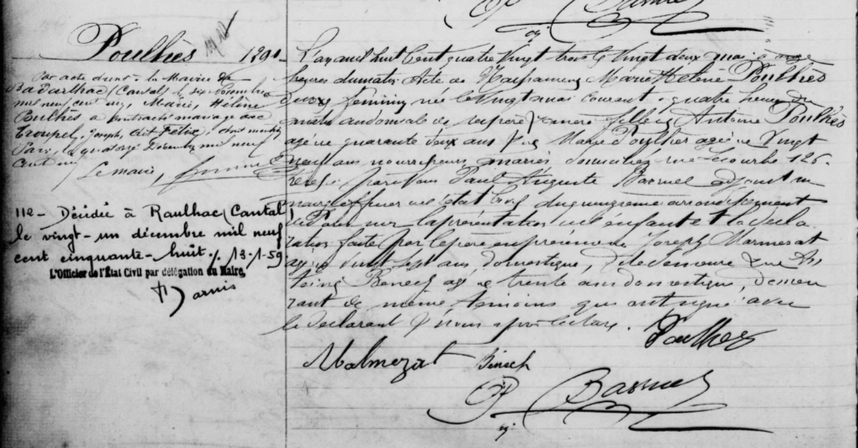 Poulhès 1290
Par acte dressé à la Mairie de
Badailhac (Cantal) le six Novembre
mil neuf cent un, Marie, Hélène
Poulhès a contracté mariage avec
Troupel, Joseph,
Paris, le quatorze Décembre mil neuf
cent un
Le maire,
112 - Décédée à Raulhac (Cantal)
le vingt-un décembre mil neuf
cent cinquante-huit ./. 13-1-59
L'Officier de l'État Civil par délégation du Maire,
L'an mil huit cent quatre vingt trois le vingt deux mai à onze
heures du matin Acte de Naissance de Marie Hélène Poulhès
du sexe féminin née le vingt mai courant à quatre heures du
matin au domicile de ses père et mère fille de Antoine Poulhès
âgé de quarante deux ans et de Marie Poulhès âgée de vingt
ans nourrisseurs mariés domiciliés rue Lecourbe 125
par nous Paul Auguste Basnel adjoint au
maire officier de l'état civil du quinzième arrondissement
de Paris sur la présentation de l'enfant et la décla
ration faite par le père en présence de Joseph Marmesat
âgé de vingt sept ans domestique, dite demeure et de
Benech âgé de trente ans domestique, demeu
rant de même, témoins qui ont signé avec
le déclarant et nous après lecture.
Poulhès
Malmezat Benech
Basnel